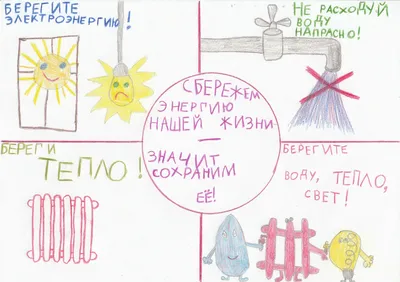 БЕРЕГИТЕ
ЭЛЕКТРОЭНЕРГИЮ!
НЕ РАСХОДУЙ
ВОДУ
НАПРАСНО!
СБЕРЕЖЕМ
ЭНЕРГИЮ
НАШЕЙ ЖИЗНИ
—
ЗНАЧИТ
СОХРАНИМ
ЕЁ!
БЕРЕГИ
ТЕПЛО!
БЕРЕГИТЕ
ВОДУ, ТЕПЛО,
СВЕТ!